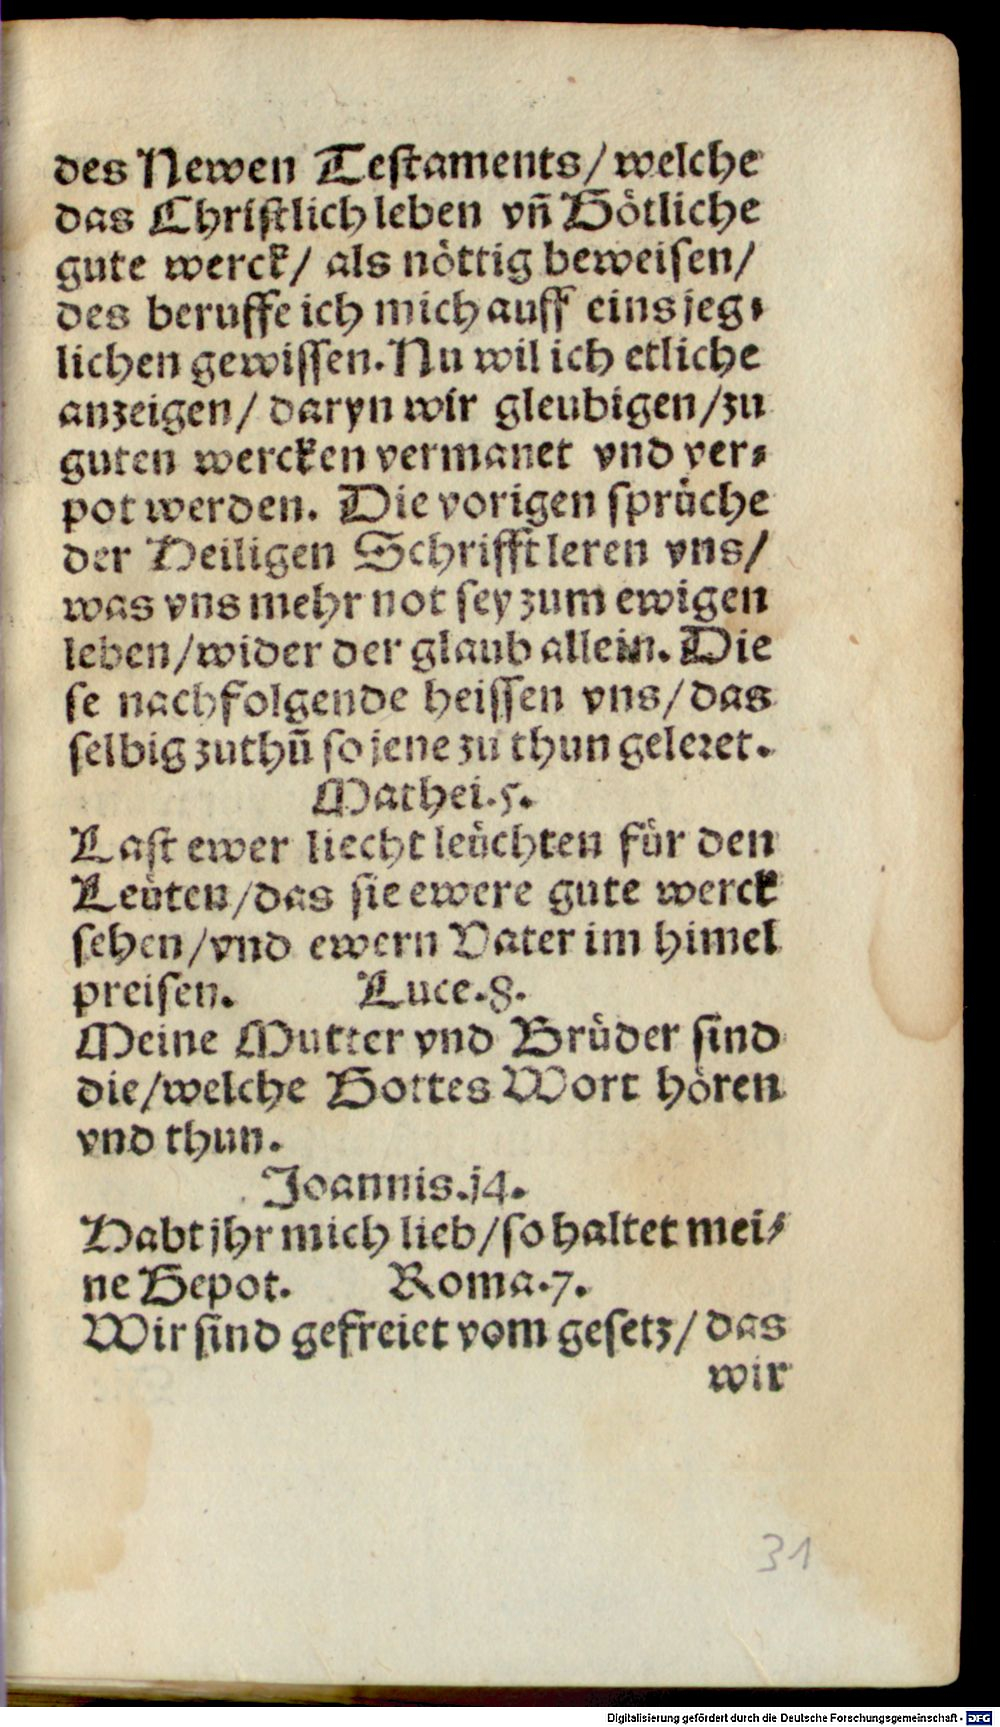 des Newen Testaments/ welche
das Christlich leben vñ Götliche
gute werck/ als nöttig beweisen/
des beruffe ich mich auff eins jeg⸗
lichen gewissen. Nu wil ich etliche
anzeigen/ daryn wir gleubigen/ zu
guten wercken vermanet vnd ver⸗
pot werden. Die vorigen sprüche
der Heiligen Schrifft leren vns/
was vns mehr not sey zum ewigen
leben/ wider der glaub allein. Die
se nachfolgende heissen vns/ das
selbig zuthũ so jene zu thun geleret.
Mathei. 5.
Last ewer liecht leüchten für den
Leüten/ das sie ewere gute werck
sehen/ vnd ewern Vater im himel
preisen. Luce. 8.
Meine Mutter vnd Brüder sind
die/ welche Gottes Wort hören
vnd thun.
Joannis. j4.
Habt jhr mich lieb/ so haltet mei⸗
ne Gepot. Roma. 7.
Wir sind gefreiet vom gesetz/ das
wir
31
Digitalisierung gefördert durch die Deutsche Forschungsgemeinschaft - DFG